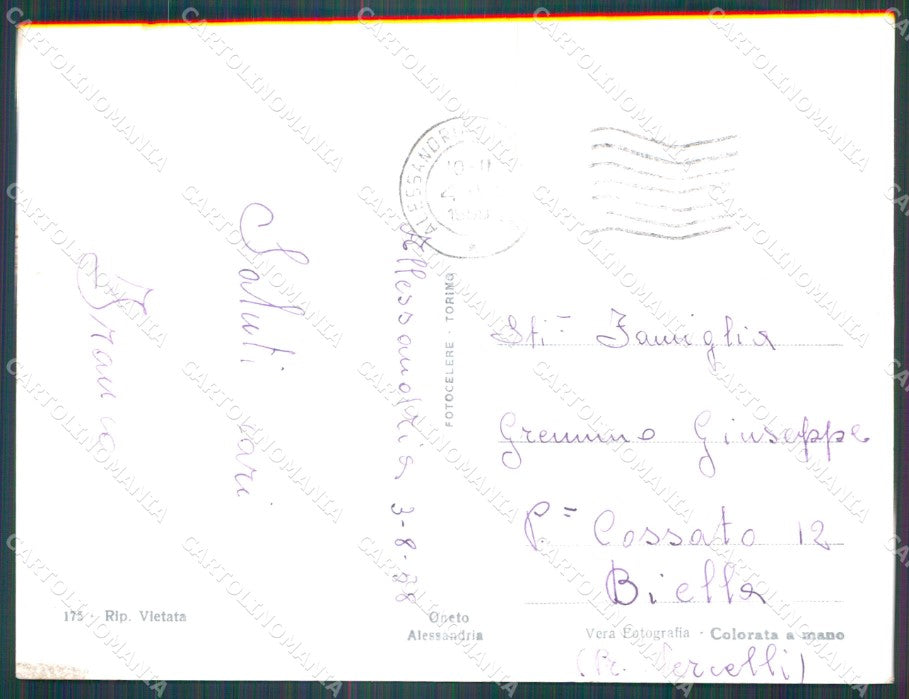 Saluti cari
Franco
Allessandria 3-8-58
ALESSANDRIA
10-11
FOTOCELERE - TORINO
Sti= Famiglia
Gremmo Giuseppe
P.= Cossato 12
Biella
(Pr. Vercelli)
175 - Rip. Vietata
Oneto
Alessandria
Vera Fotografia - Colorata a mano
CARTOLINOMANIA